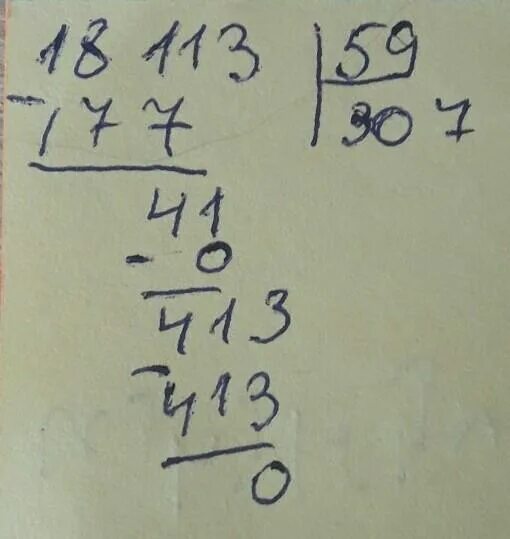 18 113 59
- 177 307
41
- 0
413
- 413
0